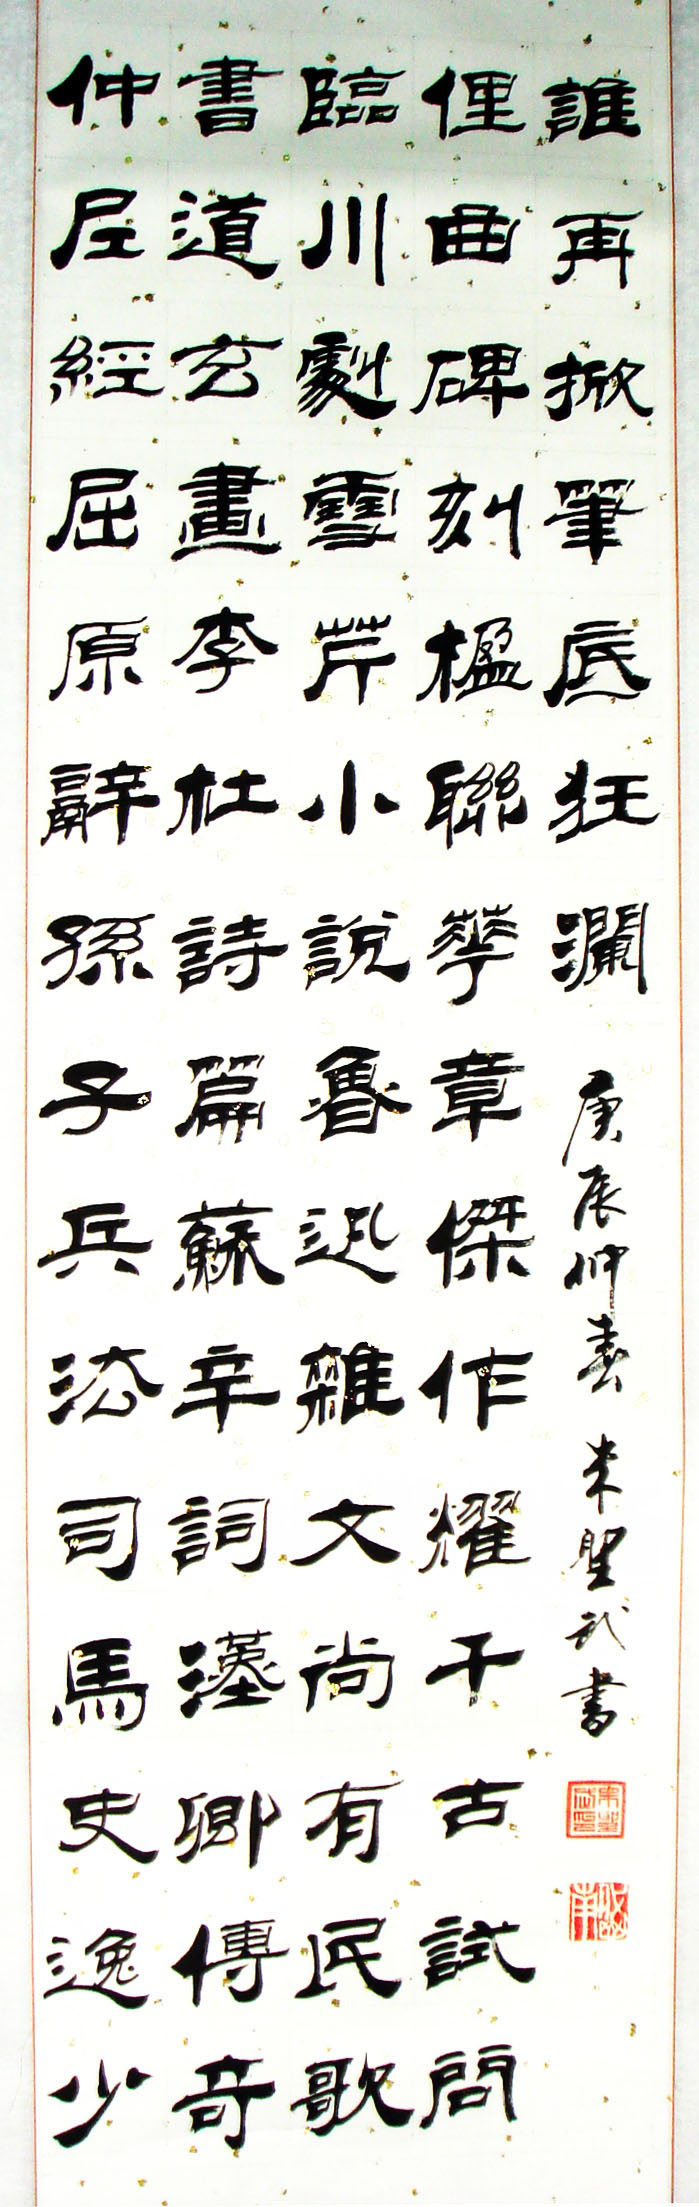 仲尼經屈原辭孫子兵法司馬史逸少
書道玄畫李杜詩篇蘇辛詞漢卿傳奇
臨川劇雪芹小說魯迅雜文尚有民歌
俚曲碑刻楹聯華章傑作耀千古試問
誰再掀筆底狂瀾
庚辰仲春 朱聖武書